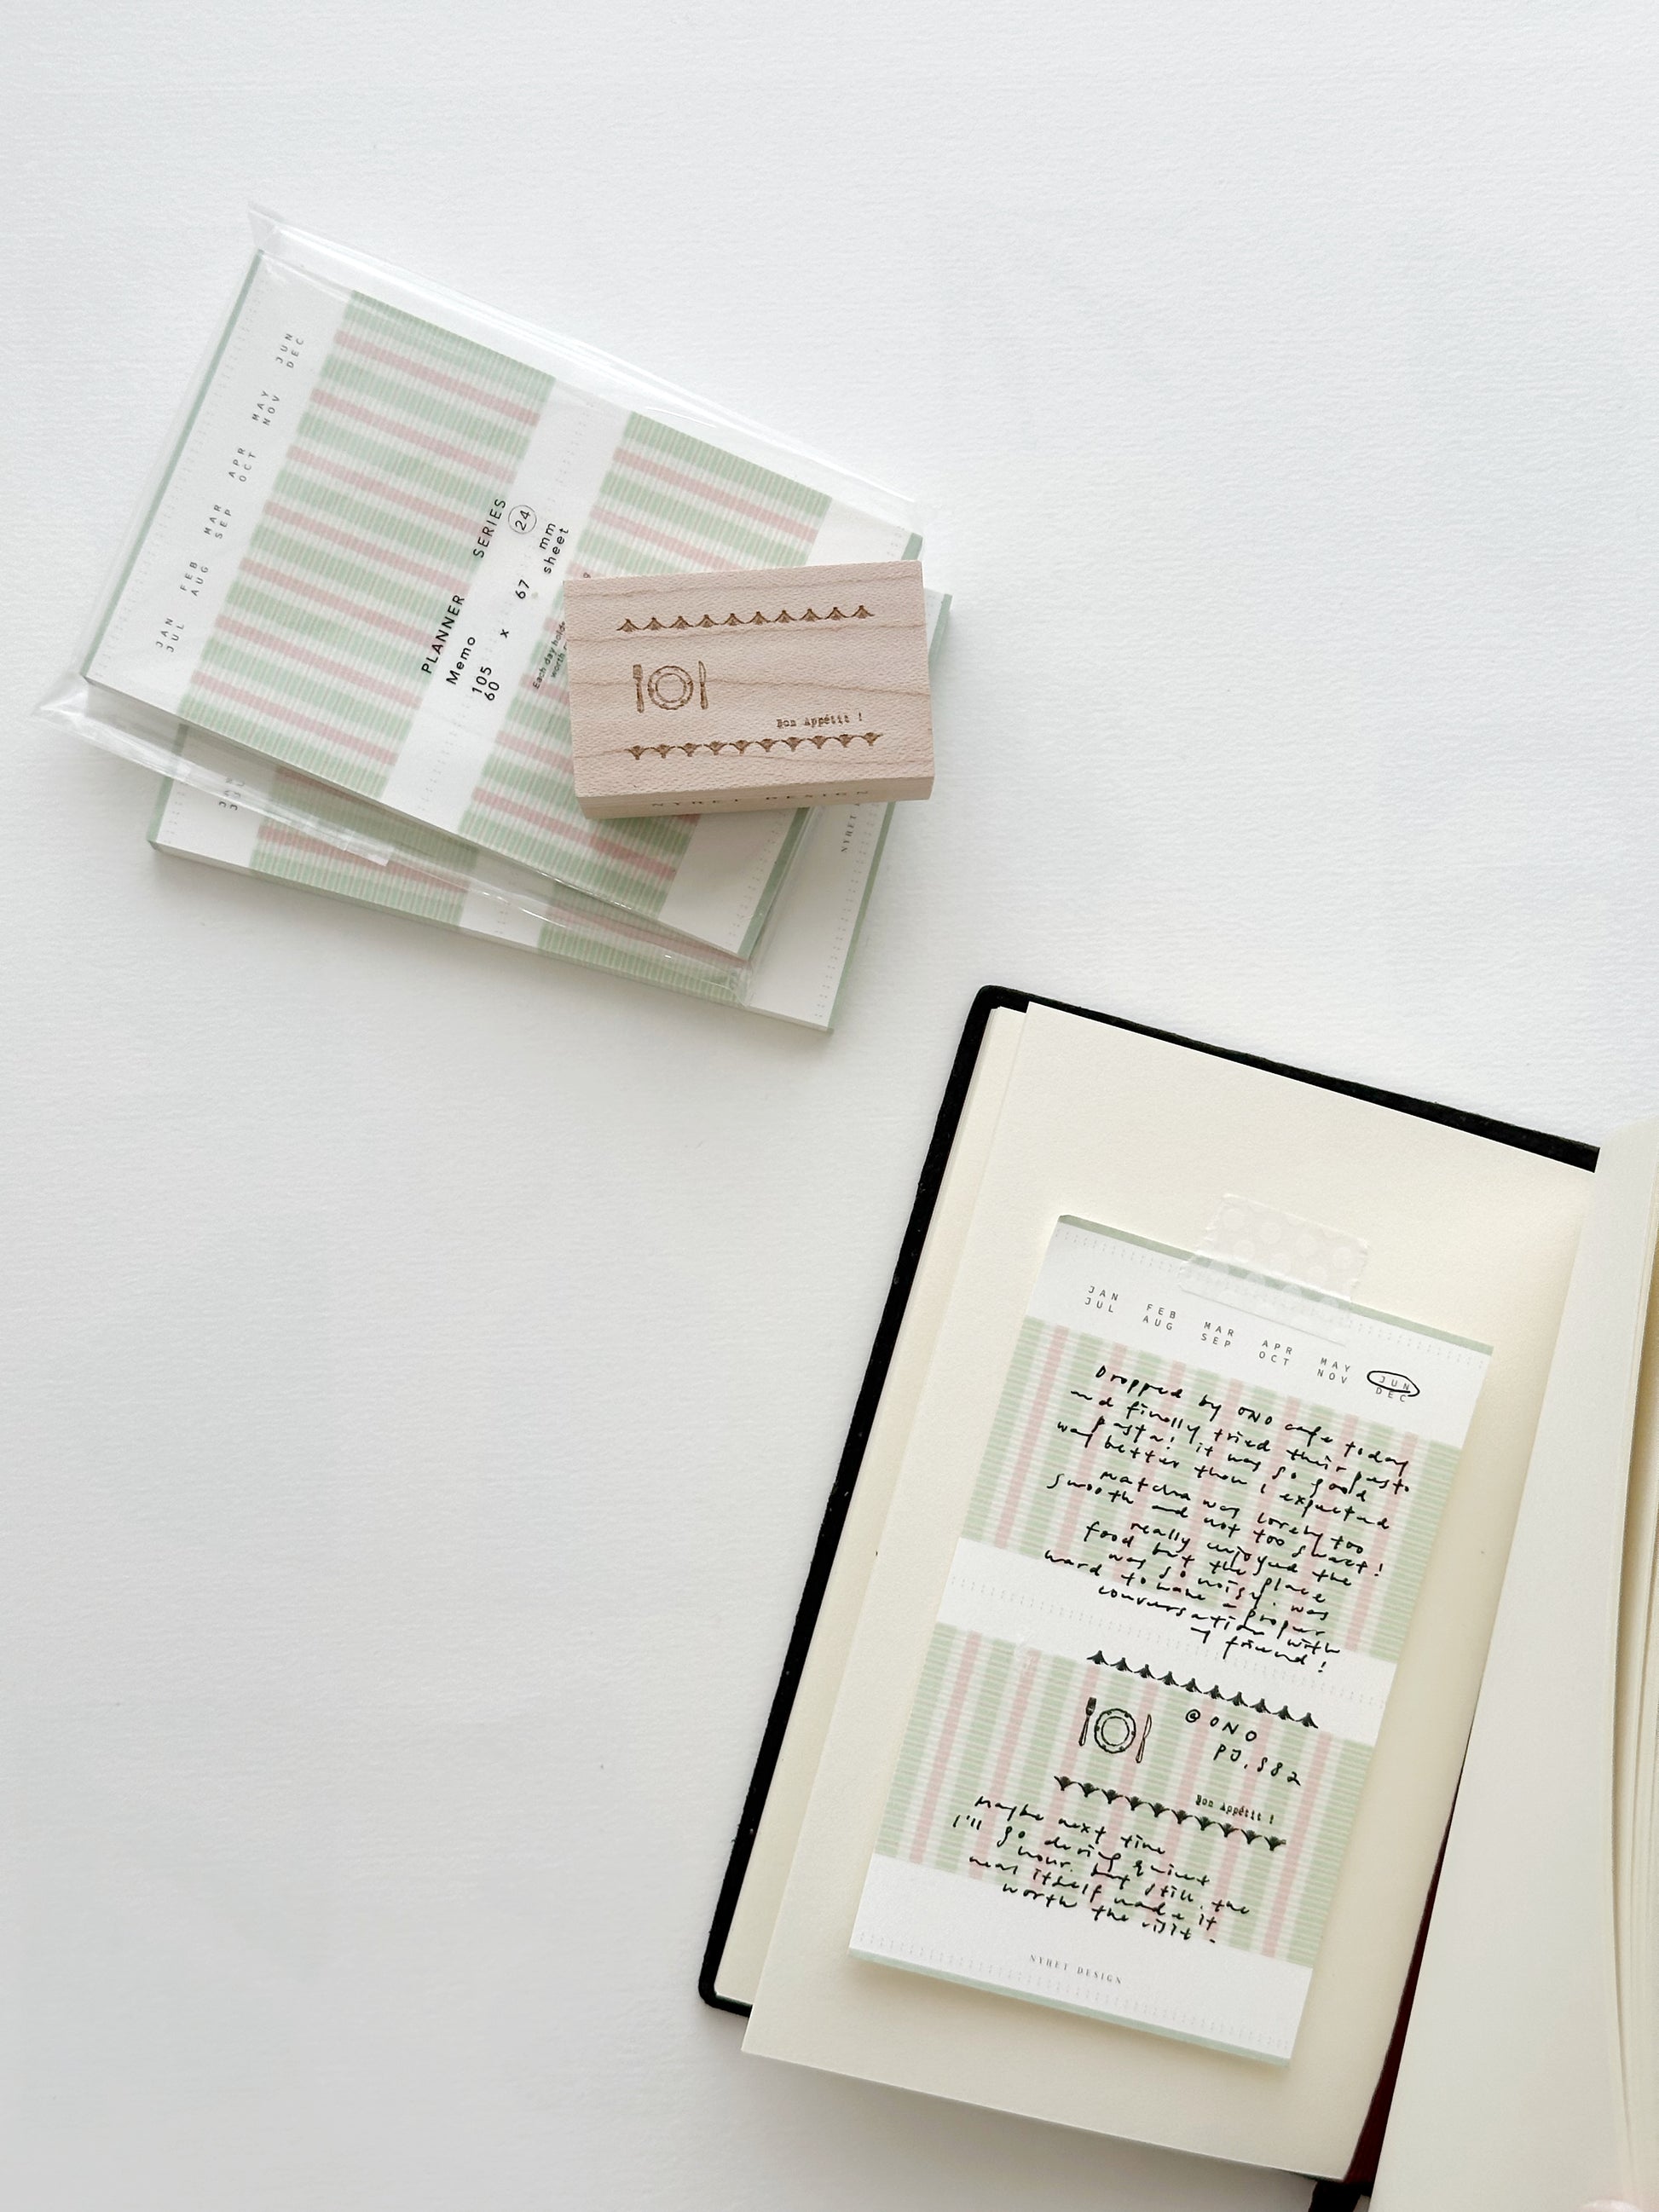 JAN FEB MAR APR MAY JUN
JUL AUG SEP OCT NOV DEC
PLANNER SERIES 24
Memo
105 x 67 mm
60 sheet
Each day holds
worth
Bon Appétit !
NYRET DESIGN
NYRET
JAN FEB MAR APR MAY JUN
JUL AUG SEP OCT NOV DEC
Dropped by ONO cafe today
and finally tried their pesto
pasta! it was so good
way better than i expected
matcha was lovely too
smooth and not too sweet!
really enjoyed the
food but the place
was so noisy. was
hard to have a proper
conversation with
my friend!
@ONO
PJ, S82
Bon Appétit !
Maybe next time
I'll go during quiet
hour. but still. the
meal itself made it
worth the visit.
NYRET DESIGN